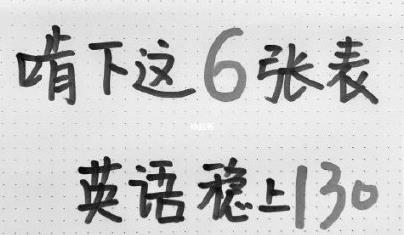 啃下这6张表
英语稳上130